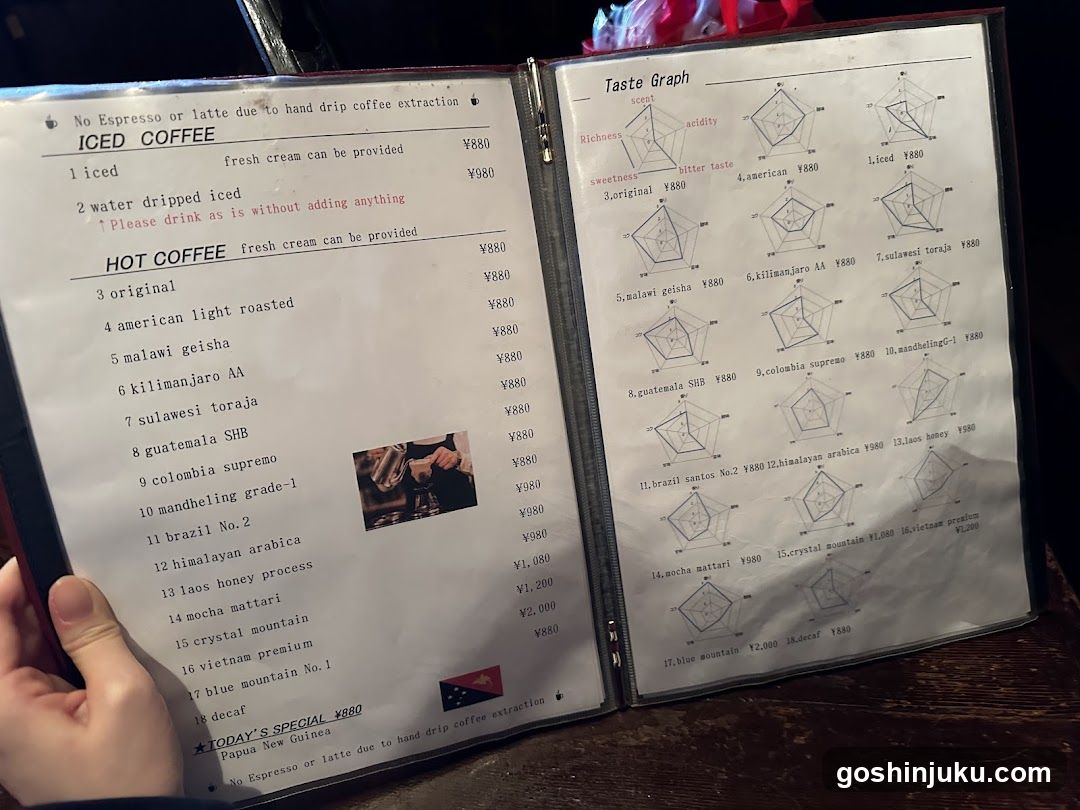 No Espresso or latte due to hand drip coffee extraction
ICED COFFEE
1 iced fresh cream can be provided ¥880
2 water dripped iced ¥980
↑Please drink as is without adding anything
HOT COFFEE fresh cream can be provided
3 original ¥880
4 american light roasted ¥880
5 malawi geisha ¥880
6 kilimanjaro AA ¥880
7 sulawesi toraja ¥880
8 guatemala SHB ¥880
9 colombia supremo ¥880
10 mandheling grade-1 ¥880
11 brazil No.2 ¥880
12 himalayan arabica ¥980
13 laos honey process ¥980
14 mocha mattari ¥980
15 crystal mountain ¥1,080
16 vietnam premium ¥1,200
17 blue mountain No.1 ¥2,000
18 decaf ¥880
★TODAY'S SPECIAL ¥880
Papua New Guinea
No Espresso or latte due to hand drip coffee extraction
Taste Graph
scent
Richness
acidity
sweetness
bitter taste
3,original ¥880
4,american ¥880
1,iced ¥880
5,malawi geisha ¥880
6,kilimanjaro AA ¥880
7,sulawesi toraja ¥880
8,guatemala SHB ¥880
9,colombia supremo ¥880
10,mandhelingG-1 ¥880
11,brazil santos No.2 ¥880
12,himalayan arabica ¥980
13,laos honey ¥980
14,mocha mattari ¥980
15,crystal mountain ¥1,080
16,vietnam premium ¥1,200
17,blue mountain ¥2,000
18,decaf ¥880
goshinjuku.com